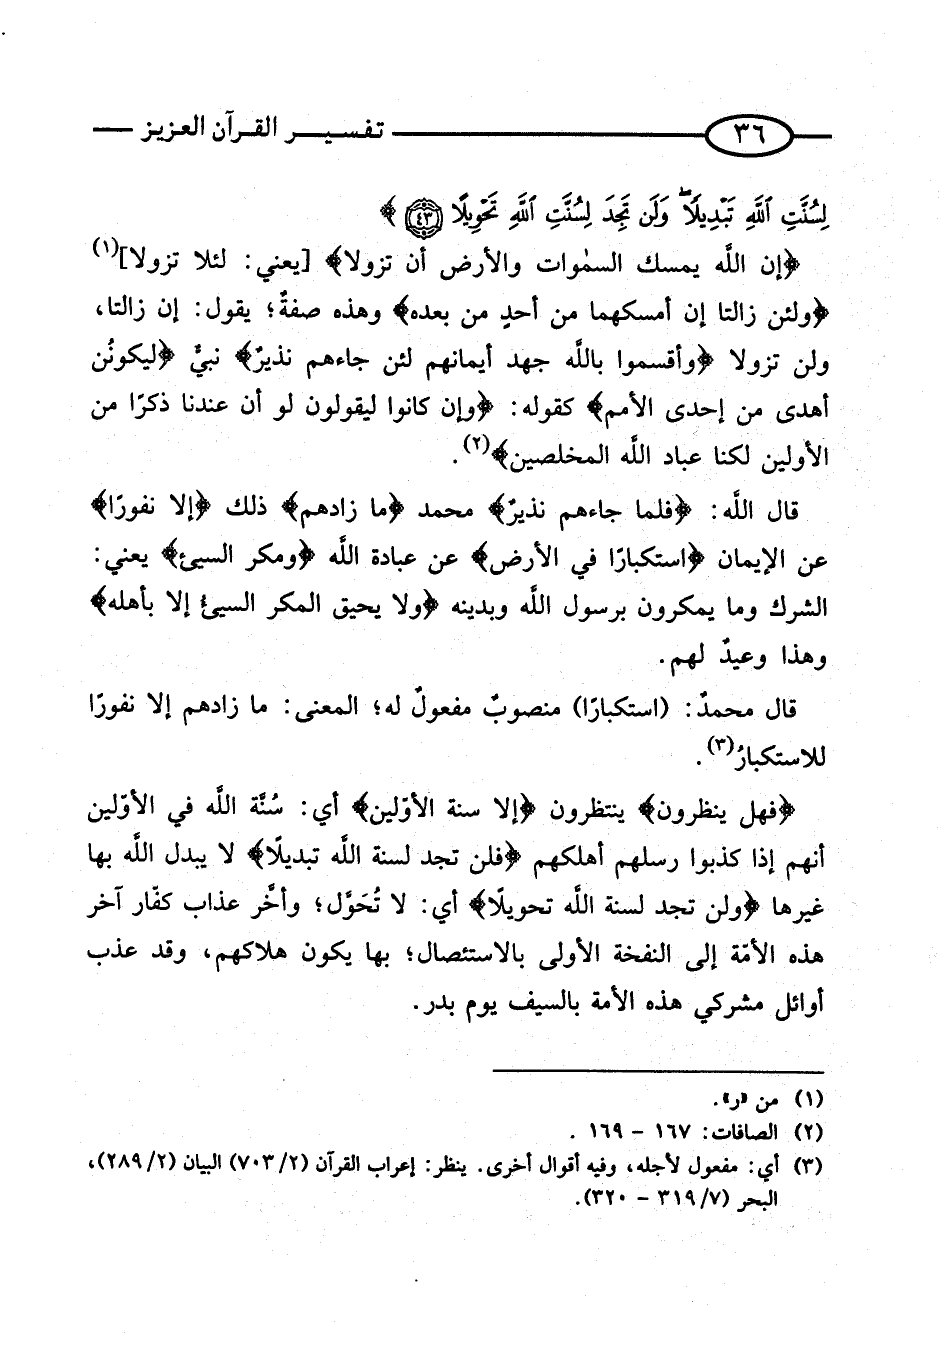 ٣٦ تفسير القرآن العزيز
لِسُنَّتِ ٱللَّهِ تَبْدِيلًا ۖ وَلَن تَجِدَ لِسُنَّتِ ٱللَّهِ تَحْوِيلًا ﴿٤٣﴾ ﴾
﴿إن اللَّه يمسك السمٰوات والأرض أن تزولا﴾ [يعني: لئلا تزولا](١)
﴿ولئن زالتا إن أمسكهما من أحدٍ من بعده﴾ وهذه صفةٌ؛ يقول: إن زالتا،
ولن تزولا ﴿وأقسموا باللَّه جهد أيمانهم لئن جاءهم نذيرٌ﴾ نبيٌّ ﴿ليكونُن
أهدى من إحدى الأمم﴾ كقوله: ﴿وإن كانوا ليقولون لو أن عندنا ذكرًا من
الأولين لكنا عباد اللَّه المخلصين﴾(٢).
قال اللَّه: ﴿فلما جاءهم نذيرٌ﴾ محمد ﴿ما زادهم﴾ ذلك ﴿إلا نفورًا﴾
عن الإيمان ﴿استكبارًا في الأرض﴾ عن عبادة اللَّه ﴿ومكر السيئ﴾ يعني:
الشرك وما يمكرون برسول اللَّه وبدينه ﴿ولا يحيق المكر السيئ إلا بأهله﴾
وهذا وعيدٌ لهم.
قال محمدٌ: (استكبارًا) منصوبٌ مفعولٌ له؛ المعنى: ما زادهم إلا نفورًا
للاستكبارُ(٣).
﴿فهل ينظرون﴾ ينتظرون ﴿إلا سنة الأوّلين﴾ أي: سُنَّة اللَّه في الأوّلين
أنهم إذا كذبوا رسلهم أهلكهم ﴿فلن تجد لسنة اللَّه تبديلًا﴾ لا يبدل اللَّه بها
غيرها ﴿ولن تجد لسنة اللَّه تحويلًا﴾ أي: لا تُحَوَّل؛ وأخَّر عذاب كفّار آخر
هذه الأمّة إلى النفخة الأولى بالاستئصال؛ بها يكون هلاكهم، وقد عذب
أوائل مشركي هذه الأمة بالسيف يوم بدر.
(١) من «ر».
(٢) الصافات: ١٦٧ - ١٦٩ .
(٣) أي: مفعول لأجله، وفيه أقوال أخرى. ينظر: إعراب القرآن (٢/ ٧٠٣) البيان (٢/ ٢٨٩)،
البحر (٧/ ٣١٩ - ٣٢٠).